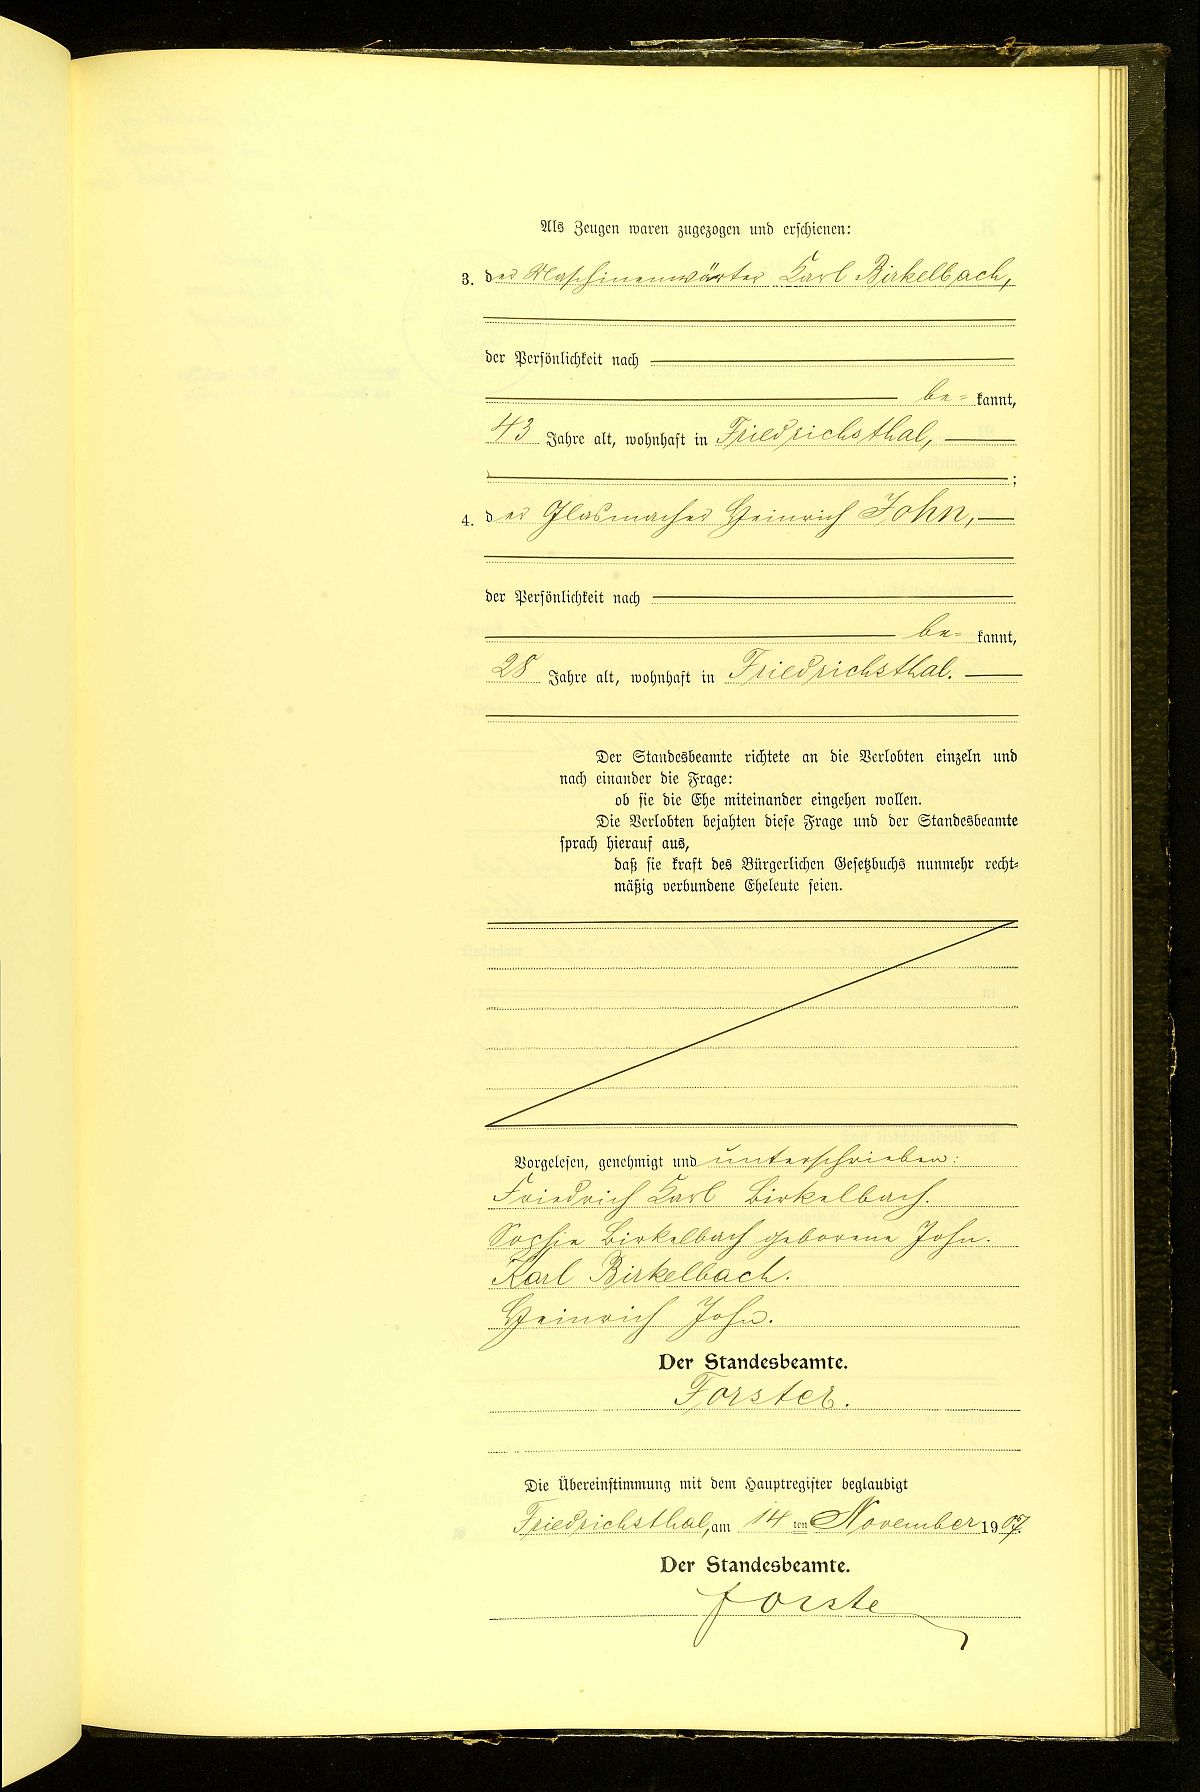 Als Zeugen waren zugezogen und erschienen:
3. der Maschinenwärter Karl Birkelbach,
der Persönlichkeit nach
be= kannt,
43 Jahre alt, wohnhaft in Friedrichsthal,
;
4. der Glasmacher Heinrich John,
der Persönlichkeit nach
be= kannt,
28 Jahre alt, wohnhaft in Friedrichsthal.
Der Standesbeamte richtete an die Verlobten einzeln und
nach einander die Frage:
ob sie die Ehe miteinander eingehen wollen.
Die Verlobten bejahten diese Frage und der Standesbeamte
sprach hierauf aus,
daß sie kraft des Bürgerlichen Gesetzbuchs nunmehr recht=
mäßig verbundene Eheleute seien.
Vorgelesen, genehmigt und unterschrieben:
Friedrich Karl Birkelbach.
Sophie Birkelbach geborene John.
Karl Birkelbach.
Heinrich John.
Der Standesbeamte.
Forster.
Die Übereinstimmung mit dem Hauptregister beglaubigt
Friedrichsthal, am 14 ten November 1907.
Der Standesbeamte.
Forster